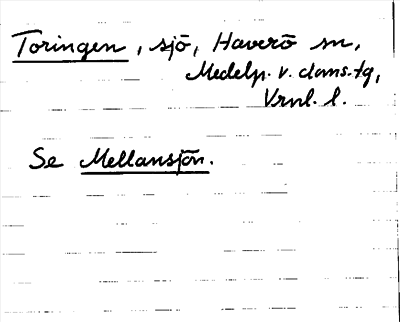 Toringen, sjö, Haverö sn,
Medelp. v. doms.-tg,
Vrnl. l.
Se Mellansjön.